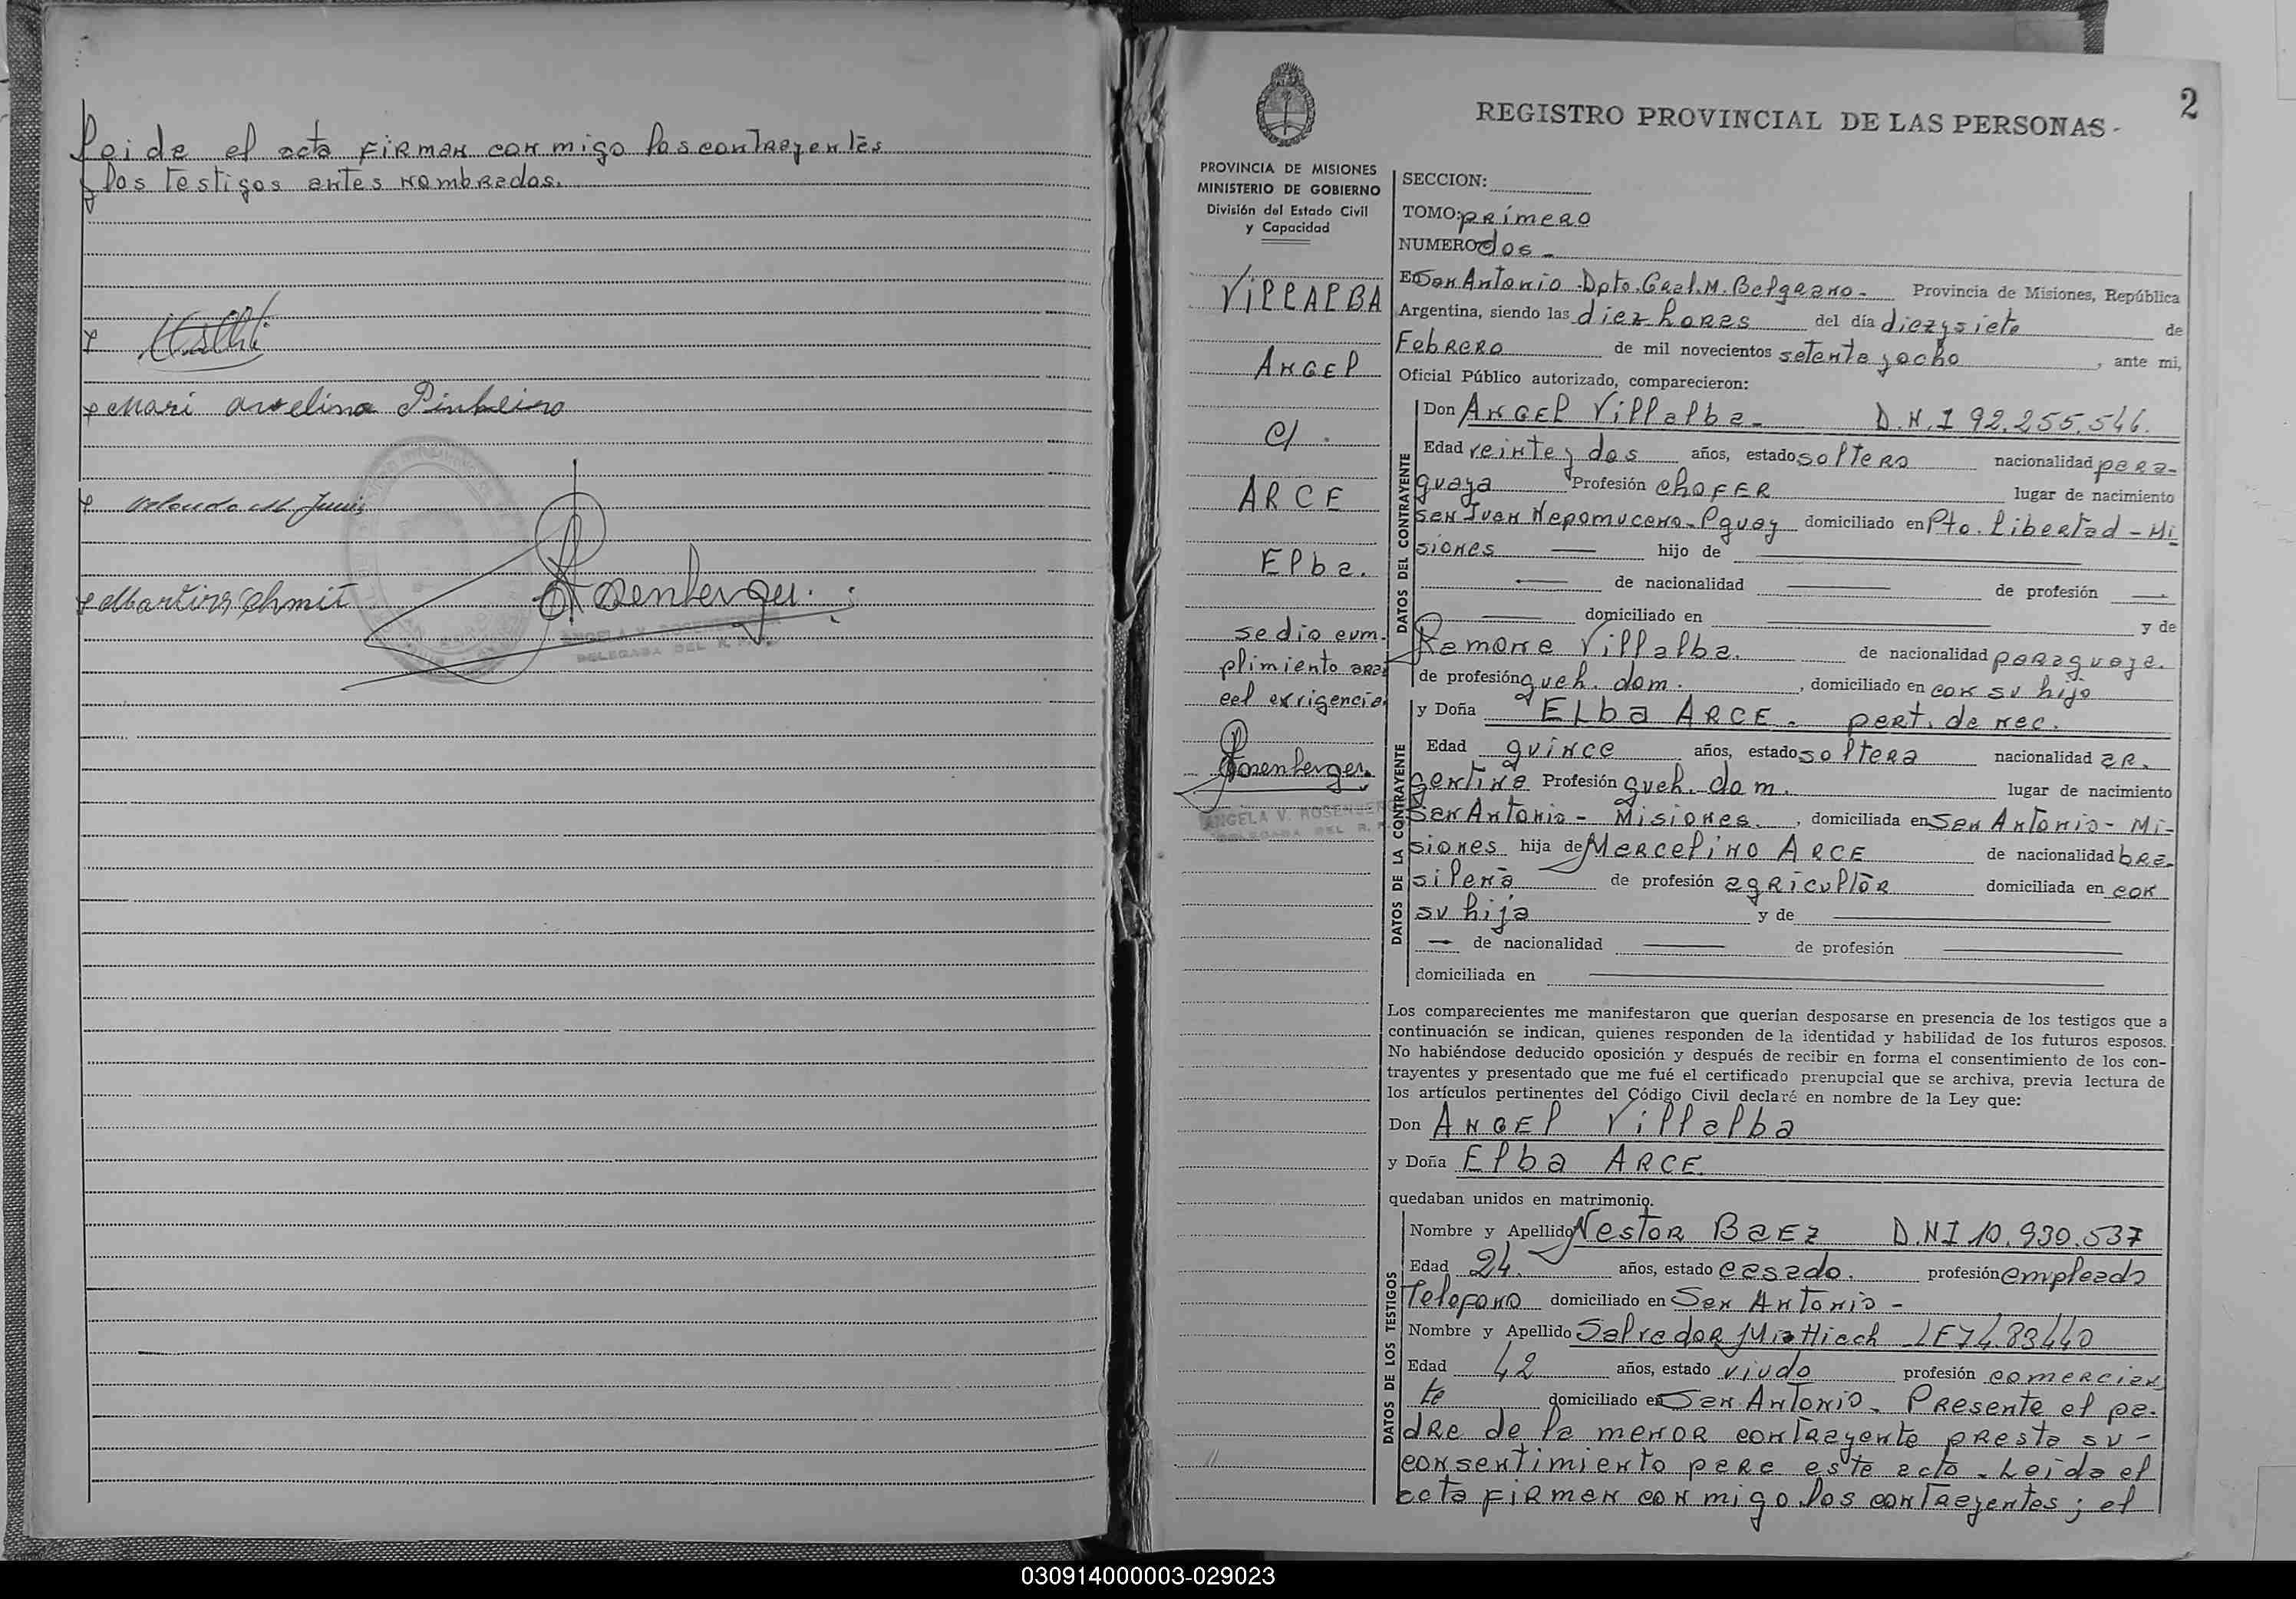 Leida el acta firman conmigo los contrayentes
y los testigos antes nombrados.
Mari Avelina Pinheiro
Martin Schmit
Rosenberger
ANGELA V. ROSENBERGER
DELEGADA DEL R. P. P.
2
REGISTRO PROVINCIAL DE LAS PERSONAS-
PROVINCIA DE MISIONES
MINISTERIO DE GOBIERNO
División del Estado Civil
y Capacidad
VILLALBA
ANGEL
c/.
ARCE
Elba.
se dio cum-
plimiento aran
cel exigencia
Rosenberger.
ANGELA V. ROSENBERGER
DELEGADA DEL R. P.
SECCION:
TOMO: primero
NUMERO dos -
En San Antonio - Dpto. Gral. M. Belgrano - Provincia de Misiones, República
Argentina, siendo las diez horas del día diez y siete de
Febrero de mil novecientos setenta y ocho, ante mi,
Oficial Público autorizado, comparecieron:
DATOS DEL CONTRAYENTE
Don ANGEL Villalba - D.N.I 92.255.546.
Edad veinte y dos años, estado soltero nacionalidad para-
guaya Profesión chofer lugar de nacimiento
San Juan Nepomuceno - Pguay domiciliado en Pto. Libertad - Mi
siones hijo de
de nacionalidad de profesión
domiciliado en y de
Ramona Villalba. de nacionalidad paraguaya.
de profesión queh. dom. , domiciliado en con su hijo
DATOS DE LA CONTRAYENTE
y Doña ELba ARCE. pert. de nac.
Edad quince años, estado soltera nacionalidad ar.
gentina Profesión queh. dom. lugar de nacimiento
San Antonio - Misiones. , domiciliada en San Antonio - Mi-
siones hija de Marcelino ARCE de nacionalidad bra-
sileña de profesión agricultor domiciliada en con
su hija y de
de nacionalidad de profesión
domiciliada en
Los comparecientes me manifestaron que querían desposarse en presencia de los testigos que a
continuación se indican, quienes responden de la identidad y habilidad de los futuros esposos.
No habiéndose deducido oposición y después de recibir en forma el consentimiento de los con-
trayentes y presentado que me fué el certificado prenupcial que se archiva, previa lectura de
los artículos pertinentes del Código Civil declaré en nombre de la Ley que:
Don ANGEL Villalba
y Doña Elba ARCE
quedaban unidos en matrimonio.
DATOS DE LOS TESTIGOS
Nombre y Apellido Nestor BaEz D.NI 10.930.537
Edad 24. años, estado casado. profesión empleado
Telefono domiciliado en San Antonio -
Nombre y Apellido Salvador LE 7483440
Edad 42 años, estado viudo profesión comercian
te domiciliado en San Antonio. Presente el pa-
dre de la menor contrayente presta su -
consentimiento para este acto. Leida el
acta firman conmigo los contrayentes; el
030914000003-029023